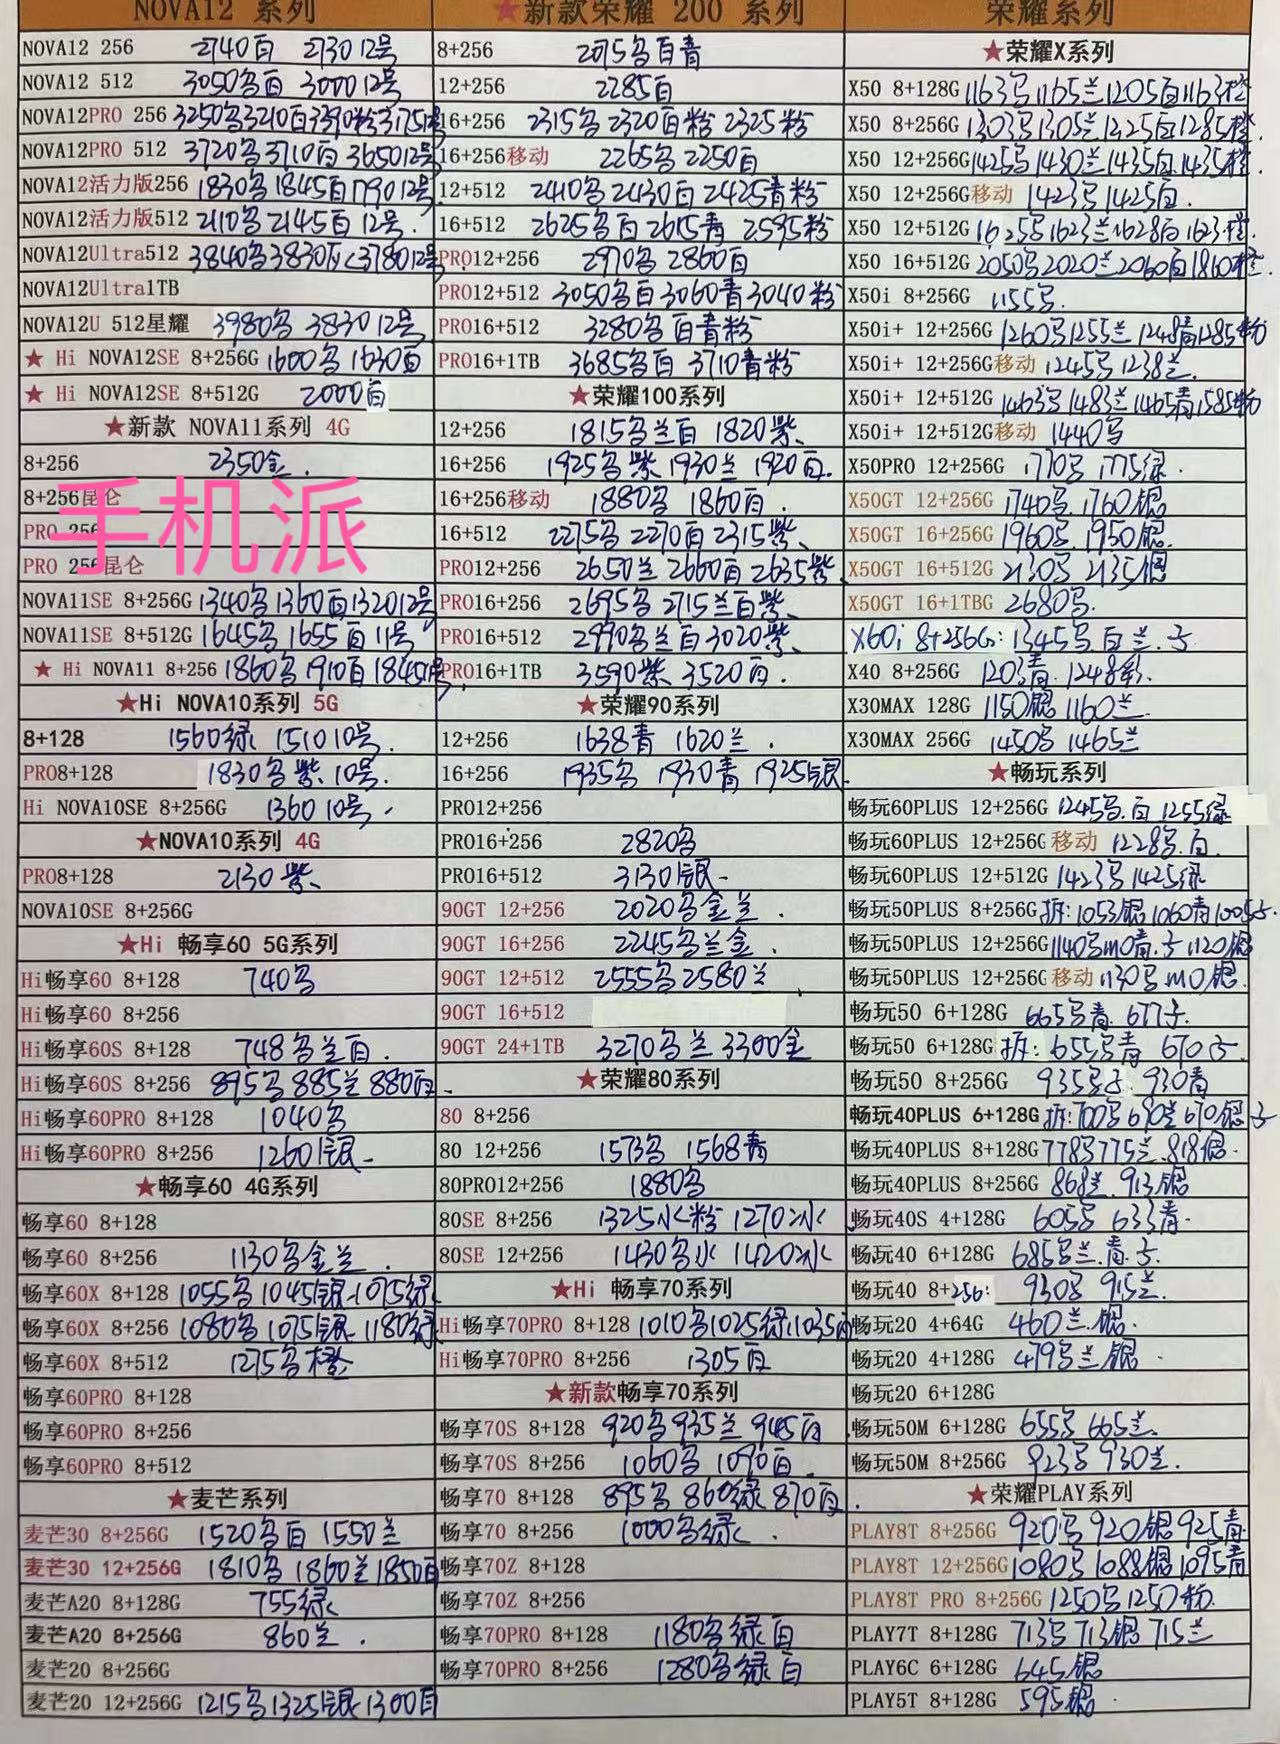 NOVA12 系列
NOVA12 256 2740白 2730 12号
NOVA12 512 3050名白 3000 12号
NOVA12PRO 256 3250名3210白3390粉3175 12号
NOVA12PRO 512 3720名3710白 3650 12号
NOVA12活力版256 1830名1845白1790 12号
NOVA12活力版512 2110名2145白12号.
NOVA12Ultra512 3840名3830灰3780 12号
NOVA12Ultra1TB
NOVA12U 512星耀 3980名 3830 12号
★ Hi NOVA12SE 8+256G 1600名1630白
★ Hi NOVA12SE 8+512G 2000白
★新款 NOVA11系列 4G
8+256 2350金.
8+256昆仑
手机派
PRO 256
PRO 256昆仑
NOVA11SE 8+256G 1340名1360白1320 12号
NOVA11SE 8+512G 1645名 1655白11号
★ Hi NOVA11 8+256 1860名1910白1845
★Hi NOVA10系列 5G
8+128 1560绿 1510 10号.
PRO8+128 1830名紫.10号.
Hi NOVA10SE 8+256G 1360 10号.
★NOVA10系列 4G
PRO8+128 2130紫
NOVA10SE 8+256G
★Hi 畅享60 5G系列
Hi畅享60 8+128 740名
Hi畅享60 8+256
Hi畅享60S 8+128 748名兰白.
Hi畅享60S 8+256 895名885兰880白
Hi畅享60PRO 8+128 1040名
Hi畅享60PRO 8+256 1260银
★畅享60 4G系列
畅享60 8+128
畅享60 8+256 1130名金兰.
畅享60X 8+128 1055名1045银1075绿
畅享60X 8+256 1080名1075银1180绿
畅享60X 8+512 1275名橙
畅享60PRO 8+128
畅享60PRO 8+256
畅享60PRO 8+512
★麦芒系列
麦芒30 8+256G 1520名白 1550兰
麦芒30 12+256G 1810名 1860兰1850白
麦芒A20 8+128G 755绿
麦芒A20 8+256G 860兰.
麦芒20 8+256G
麦芒20 12+256G 1215名1325银1300白
★新款荣耀 200 系列
8+256 2075名白青
12+256 2285白
16+256 2315名2320白粉2325粉
16+256移动 2265名2250白
12+512 2410名2430白2425青粉
16+512 2625名白2615青 2595粉
PRO12+256 2970名2860白
PRO12+512 3050名白3060青3040粉
PRO16+512 3280名白青粉
PRO16+1TB 3685名白 3710青粉
★荣耀100系列
12+256 1815名兰白 1820紫
16+256 1925名紫1930兰1920白.
16+256移动 1880名1860白.
16+512 2275名2270白2315紫
PRO12+256 2650兰2660白2635紫
PRO16+256 2695名2715兰白紫
PRO16+512 2990名兰白3020紫
PRO16+1TB 3590紫 3520白.
★荣耀90系列
12+256 1638青 1620兰.
16+256 1935名 1930青 1925银
PRO12+256
PRO16+256 2820名
PRO16+512 3130银
90GT 12+256 2020名金兰.
90GT 16+256 2245名兰金.
90GT 12+512 2555名2580兰
90GT 16+512
90GT 24+1TB 3270名兰3300金
★荣耀80系列
80 8+256
80 12+256 1573名 1568青
80PRO12+256 1880名
80SE 8+256 1325水粉 1270冰
80SE 12+256 1430名水 1420冰
★Hi 畅享70系列
Hi畅享70PRO 8+128 1010名1025绿1035白
Hi畅享70PRO 8+256 1305白
★新款畅享70系列
畅享70S 8+128 920名935兰945白
畅享70S 8+256 1060名1090白.
畅享70 8+128 895名860绿870白.
畅享70 8+256 1000名绿.
畅享70Z 8+128
畅享70Z 8+256
畅享70PRO 8+128 1180名绿白
畅享70PRO 8+256 1280名绿白
荣耀系列
★荣耀X系列
X50 8+128G 1163名1165兰1205白1163橙
X50 8+256G 1303名1305兰1225白1285橙
X50 12+256G 1425名1430兰1435白.1435橙
X50 12+256G移动 1423名1425白.
X50 12+512G 1625名1623兰1628白1623橙.
X50 16+512G 2050名2020兰2060白1860橙.
X50i 8+256G 1155名.
X50i+ 12+256G 1260名1255兰1248青1285粉
X50i+ 12+256G移动 1245名1238兰.
X50i+ 12+512G 1463名1483兰1465青1585粉
X50i+ 12+512G移动 1440名
X50PRO 12+256G 1770名1775绿.
X50GT 12+256G 1740名.1760银
X50GT 16+256G 1960名.1950银.
X50GT 16+512G 2130名 2135银
X50GT 16+1TBG 2680名.
X60i 8+256G: 1345名白兰.子
X40 8+256G 1203青.1248彩.
X30MAX 128G 1150银1160兰.
X30MAX 256G 1450名1465兰
★畅玩系列
畅玩60PLUS 12+256G 1245名.白1255绿
畅玩60PLUS 12+256G移动 1228名.白.
畅玩60PLUS 12+512G 1423名1425绿
畅玩50PLUS 8+256G 拆:1053银1060青1005子.
畅玩50PLUS 12+256G 1140名1110青.子1120银
畅玩50PLUS 12+256G移动 1130名1110银.
畅玩50 6+128G 665名青.677子.
畅玩50 6+128G 拆: 655名青 670子.
畅玩50 8+256G 935名子.930青
畅玩40PLUS 6+128G 拆:700名690兰670银子
畅玩40PLUS 8+128G 778名775兰.818银.
畅玩40PLUS 8+256G 868兰.913银
畅玩40S 4+128G 605名 633青.
畅玩40 6+128G 685名兰.青.子.
畅玩40 8+256: 930名 915兰.
畅玩20 4+64G 460兰.银.
畅玩20 4+128G 479名兰银.
畅玩20 6+128G
畅玩50M 6+128G 655名665兰.
畅玩50M 8+256G 923名930兰.
★荣耀PLAY系列
PLAY8T 8+256G 920名920银925青.
PLAY8T 12+256G 1080名1088银1095青
PLAY8T PRO 8+256G 1250名1250粉.
PLAY7T 8+128G 713名713银715兰
PLAY6C 6+128G 645银
PLAY5T 8+128G 595银.